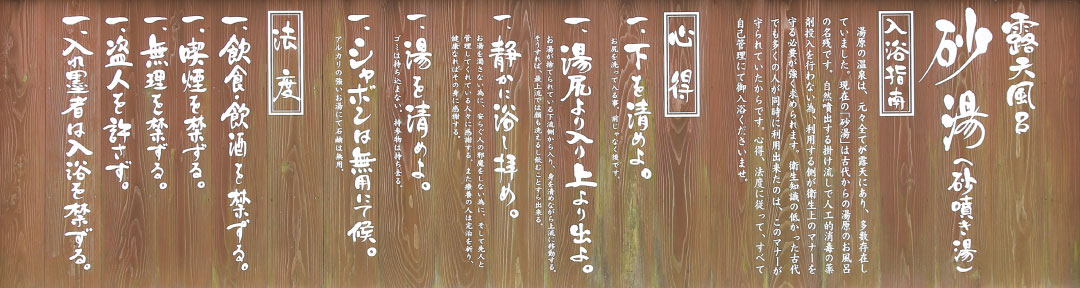 露天風呂
砂湯(砂噴き湯)
入浴指南
湯原の温泉は、元々全てが露天にあり、多数存在し
ていました。現在の「砂湯」は古代からの湯原のお風呂
の名残です。自然噴出する掛け流しで人工的消毒の薬
剤投入を行わない為、利用する側が衛生上のマナーを
守る必要が強く求められます。衛生知識の低かった古代
でも多くの人が同時に利用出来たのは、このマナーが
守られていたからです。心得、法度に従って、すべて
自己管理にて御入浴くださいませ。
心得
一、下を清めよ。
お尻を洗って入る事。前じゃなく後です。
一、湯尻より入り上より出よ。
お湯が捨てられている下流側から入り、身を清めながら上流に移動する。
そうすれば、最上流では顔も洗えるし飲むことすら出来る。
一、静かに浴し拝め。
お湯を濁さない為に、安らぐ人の邪魔をしない為に、そして先人と
管理してくれている人々に感謝する。また療養の人は完治を祈り、
健康なればその身に感謝する。
一、湯を清めよ。
ゴミは持ち込まない。持参物は持ち去る。
一、シャボンは無用にて候。
アルカリの強いお湯にて石鹸は無用。
法度
一、飲食飲酒を禁ずる。
一、喫煙を禁ずる。
一、無理を禁ずる。
一、盗人を許さず。
一、入れ墨者は入浴を禁ずる。